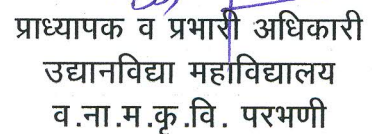 प्राध्यापक व प्रभारी अधिकारी
उद्यानविद्या महाविद्यालय
व.ना.म.कृ.वि. परभणी